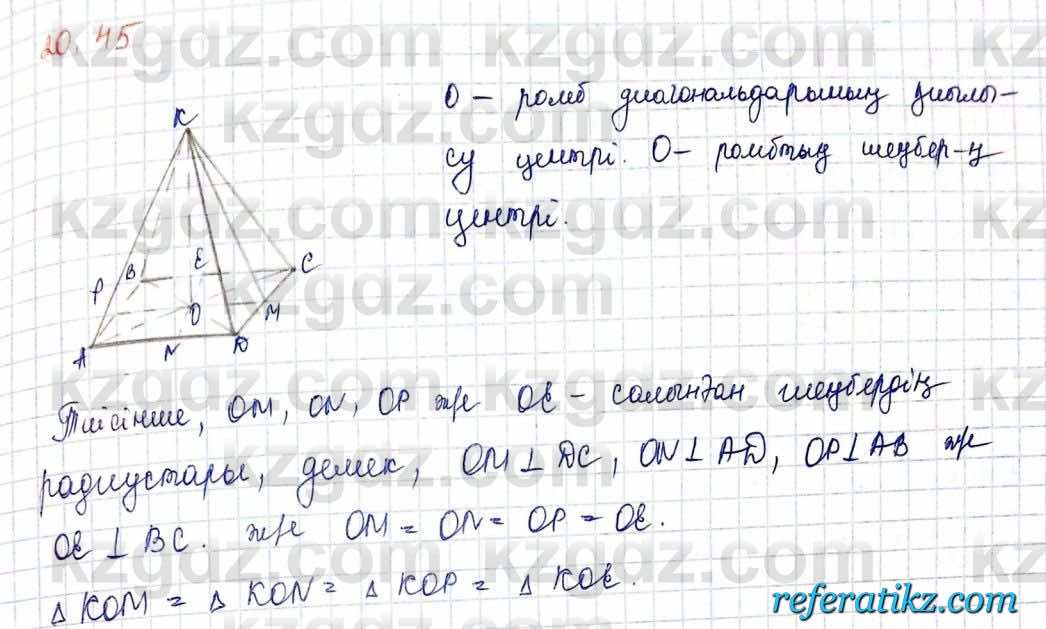 20.45
kzgdz.com
K
B
E
C
P
O
M
A
N
D
O – ромб диагональдарының қиылы-
су центрі. O – ромбтың шеңбер-ң
центрі.
Тиісінше, OM, ON, OP және OE – салынған шеңбердің
радиустары, демек, OM ⊥ DC, ON ⊥ AD, OP ⊥ AB және
OE ⊥ BC. және OM = ON = OP = OE.
△ KOM = △ KON = △ KOP = △ KOE.
referatikz.com